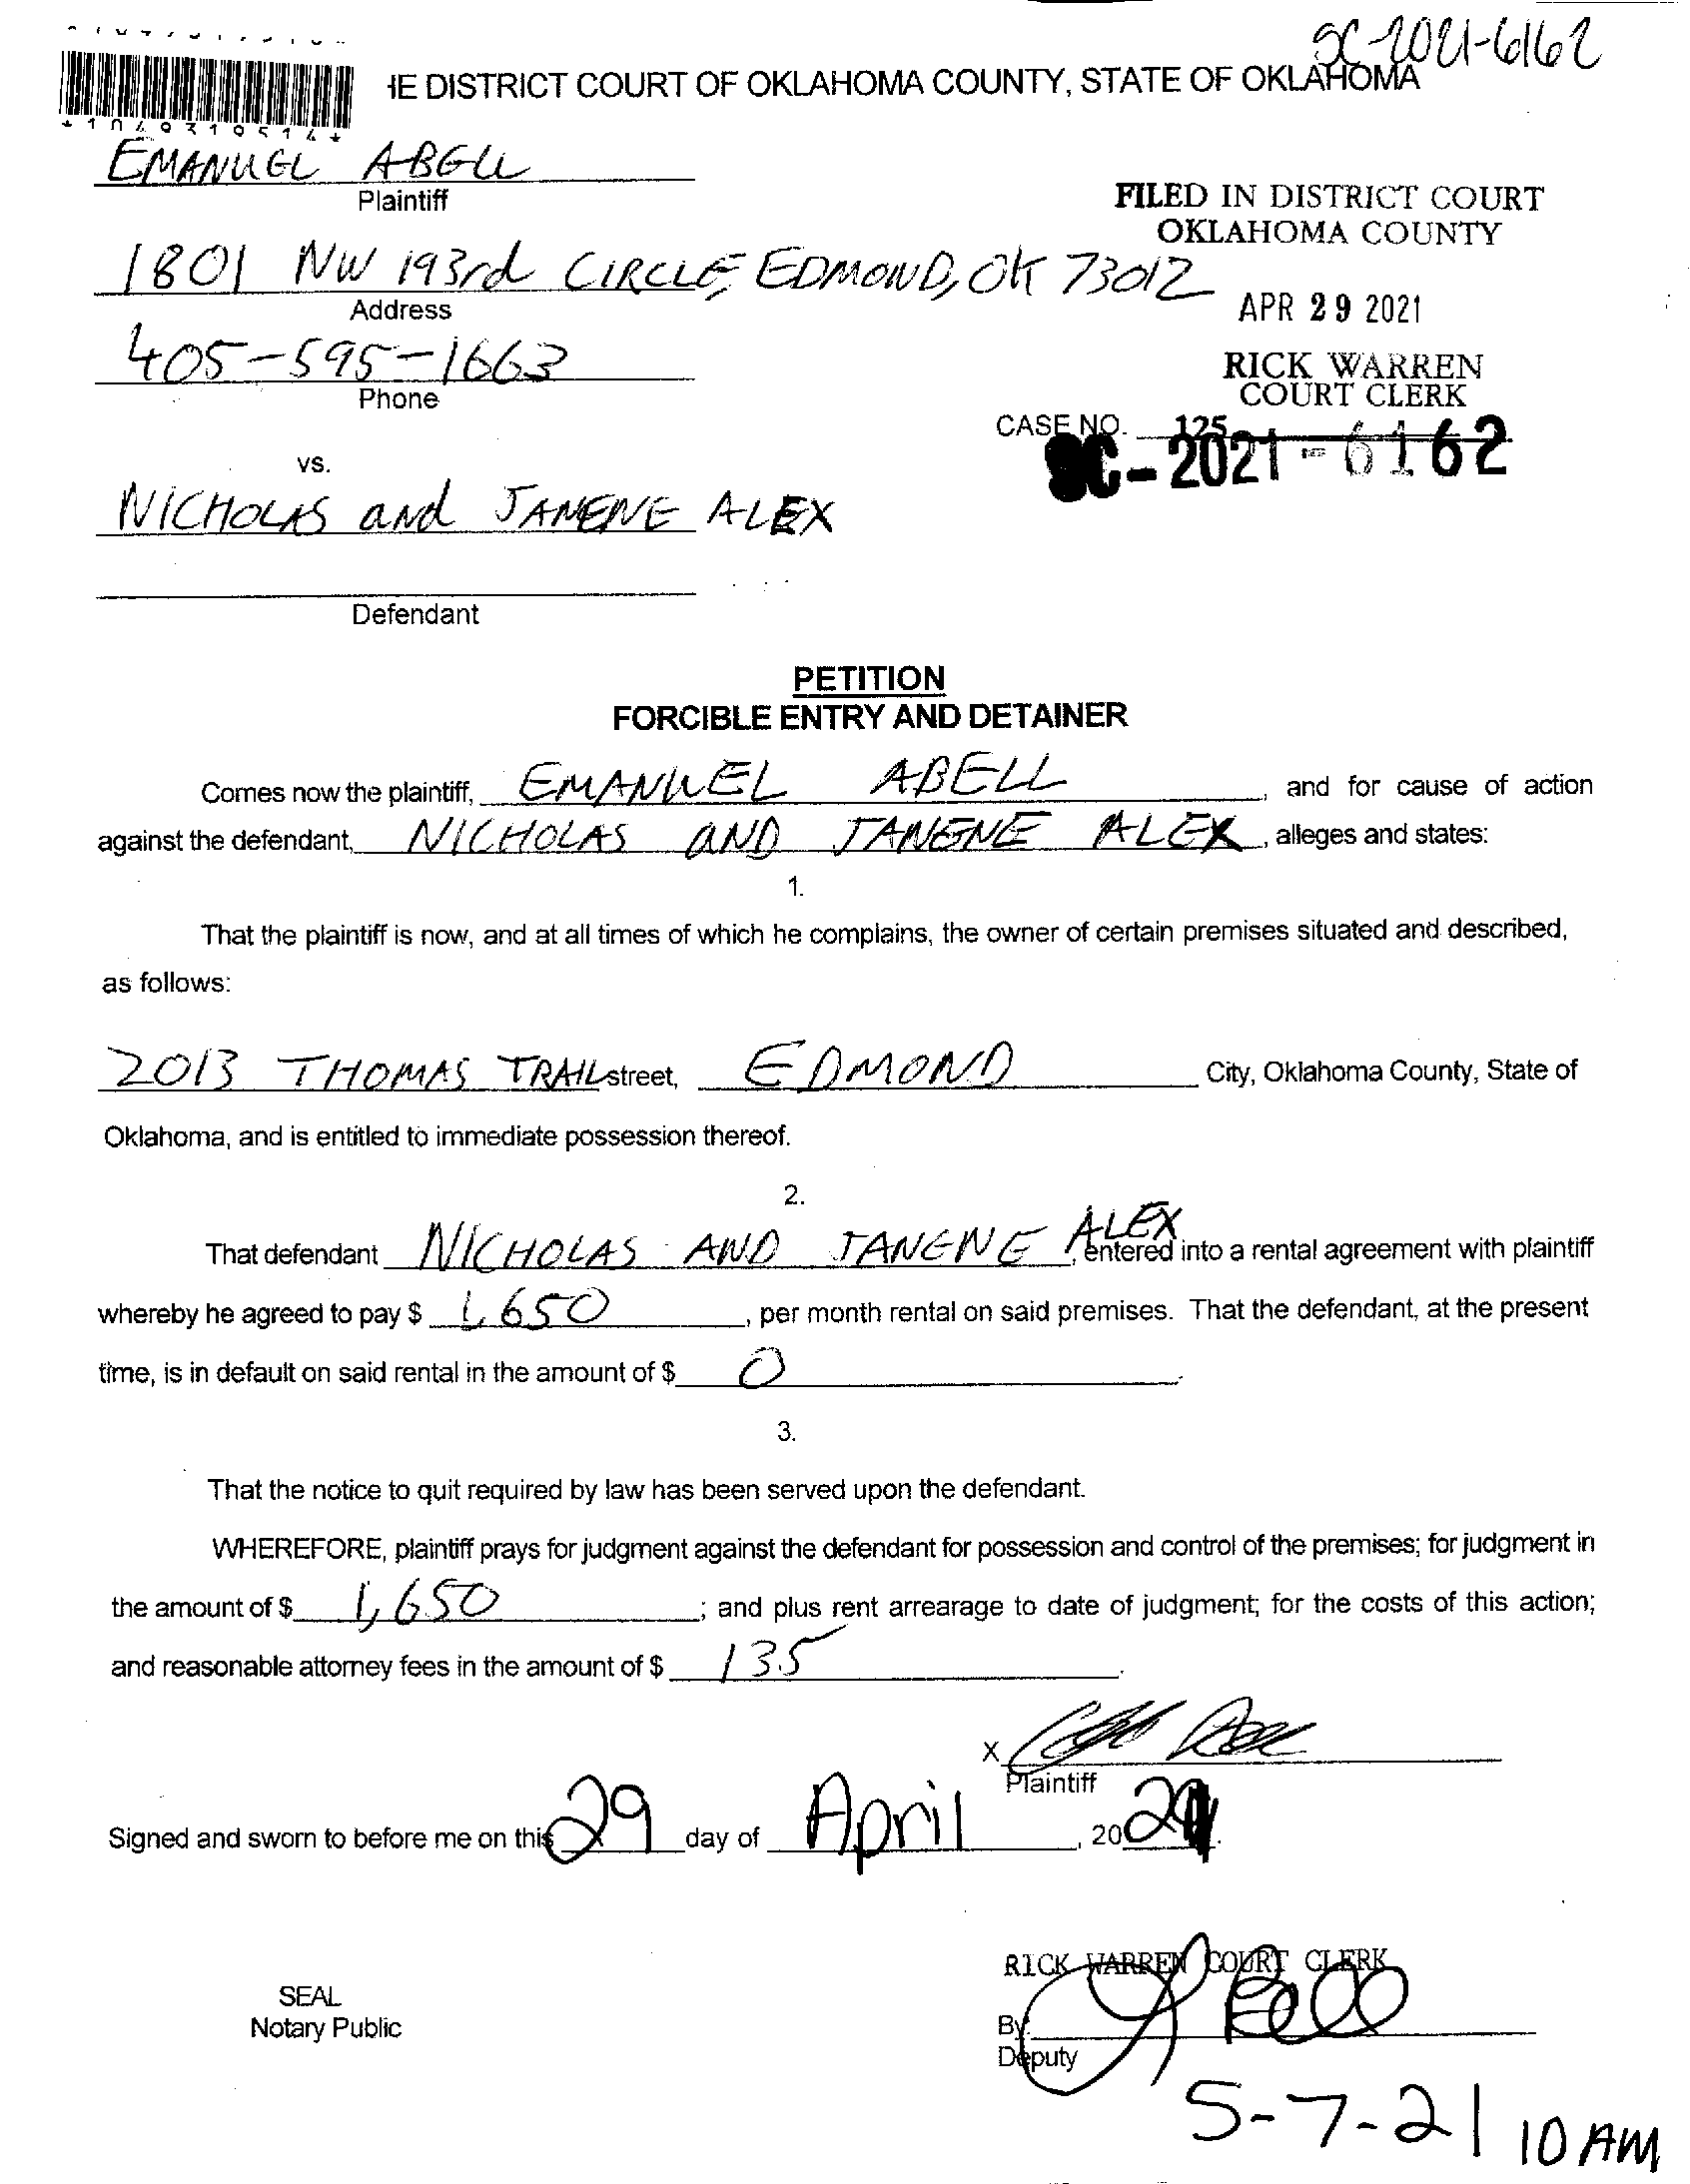 SC-2021-6162
IE DISTRICT COURT OF OKLAHOMA COUNTY, STATE OF OKLAHOMA
*1049319514*
EMANUEL ABELL
Plaintiff
FILED IN DISTRICT COURT
OKLAHOMA COUNTY
1801 NW 193rd CIRCLE, EDMOND, OK 73012
Address
APR 29 2021
405-595-1663
Phone
RICK WARREN
COURT CLERK
CASE NO. 125
SC-2021-6162
vs.
NICHOLAS and JANENE ALEX
Defendant
PETITION
FORCIBLE ENTRY AND DETAINER
Comes now the plaintiff, EMANUEL ABELL, and for cause of action
against the defendant, NICHOLAS AND JANENE ALEX, alleges and states:
1.
That the plaintiff is now, and at all times of which he complains, the owner of certain premises situated and described,
as follows:
2013 THOMAS TRAIL street, EDMOND City, Oklahoma County, State of
Oklahoma, and is entitled to immediate possession thereof.
2.
That defendant NICHOLAS AND JANENE ALEX, entered into a rental agreement with plaintiff
whereby he agreed to pay $ 1,650, per month rental on said premises. That the defendant, at the present
time, is in default on said rental in the amount of $ 0.
3.
That the notice to quit required by law has been served upon the defendant.
WHEREFORE, plaintiff prays for judgment against the defendant for possession and control of the premises; for judgment in
the amount of $ 1,650; and plus rent arrearage to date of judgment; for the costs of this action;
and reasonable attorney fees in the amount of $ 135.
X
Plaintiff
Signed and sworn to before me on this 29 day of April, 2021.
RICK WARREN COURT CLERK
SEAL
Notary Public
By
Deputy
5-7-21 10 AM